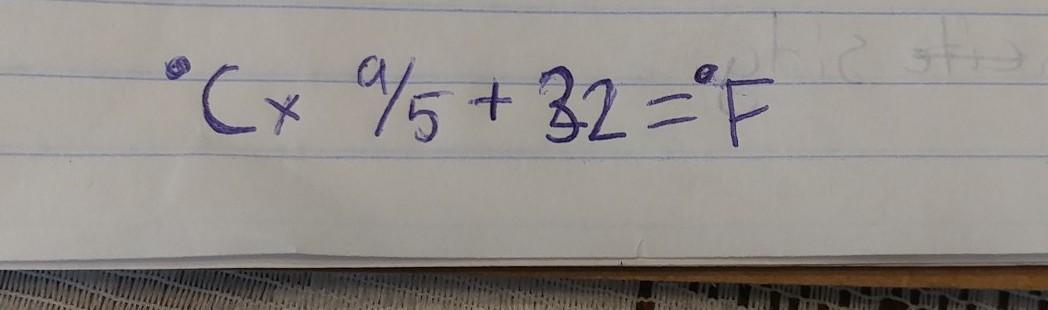 °C x 9/5 + 32 = °F